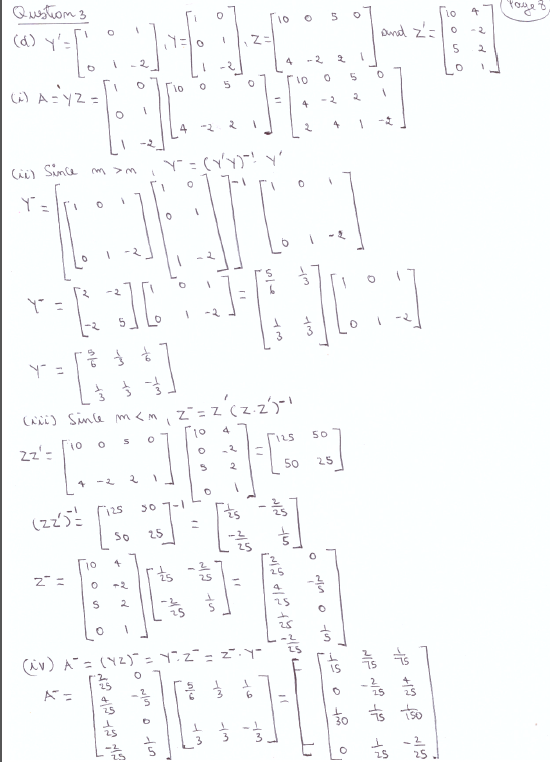 Question 3
Page 8
(d) Y' = [1 0 1; 0 1 -2], Y = [1 0; 0 1; 1 -2], Z = [10 0 5 0; 4 -2 2 1] and Z' = [10 4; 0 -2; 5 2; 0 1]
(i) A = YZ = [1 0; 0 1; 1 -2] [10 0 5 0; 4 -2 2 1] = [10 0 5 0; 4 -2 2 1; 2 4 1 -2]
(ii) Since m > n, Y⁻ = (Y'Y)⁻¹ Y'
Y⁻ = [[1 0 1; 0 1 -2] [1 0; 0 1; 1 -2]]⁻¹ [1 0 1; 0 1 -2]
Y⁻ = [2 -2; -2 5] [1 0 1; 0 1 -2] = [5/6 1/3; 1/3 1/3] [1 0 1; 0 1 -2]
Y⁻ = [5/6 1/3 1/6; 1/3 1/3 -1/3]
(iii) Since m < n, Z⁻ = Z'(Z.Z')⁻¹
ZZ' = [10 0 5 0; 4 -2 2 1] [10 4; 0 -2; 5 2; 0 1] = [125 50; 50 25]
(ZZ')⁻¹ = [125 50; 50 25]⁻¹ = [1/25 -2/25; -2/25 1/5]
Z⁻ = [10 4; 0 -2; 5 2; 0 1] [1/25 -2/25; -2/25 1/5] = [2/25 0; 4/25 -2/5; 1/25 0; -2/25 1/5]
(iv) A⁻ = (YZ)⁻ = Y⁻.Z⁻ = Z⁻.Y⁻
A⁻ = [2/25 0; 4/25 -2/5; 1/25 0; -2/25 1/5] [5/6 1/3 1/6; 1/3 1/3 -1/3] = [1/15 2/75 1/75; 0 -2/25 4/25; 1/30 1/75 1/150; 0 1/25 -2/25]